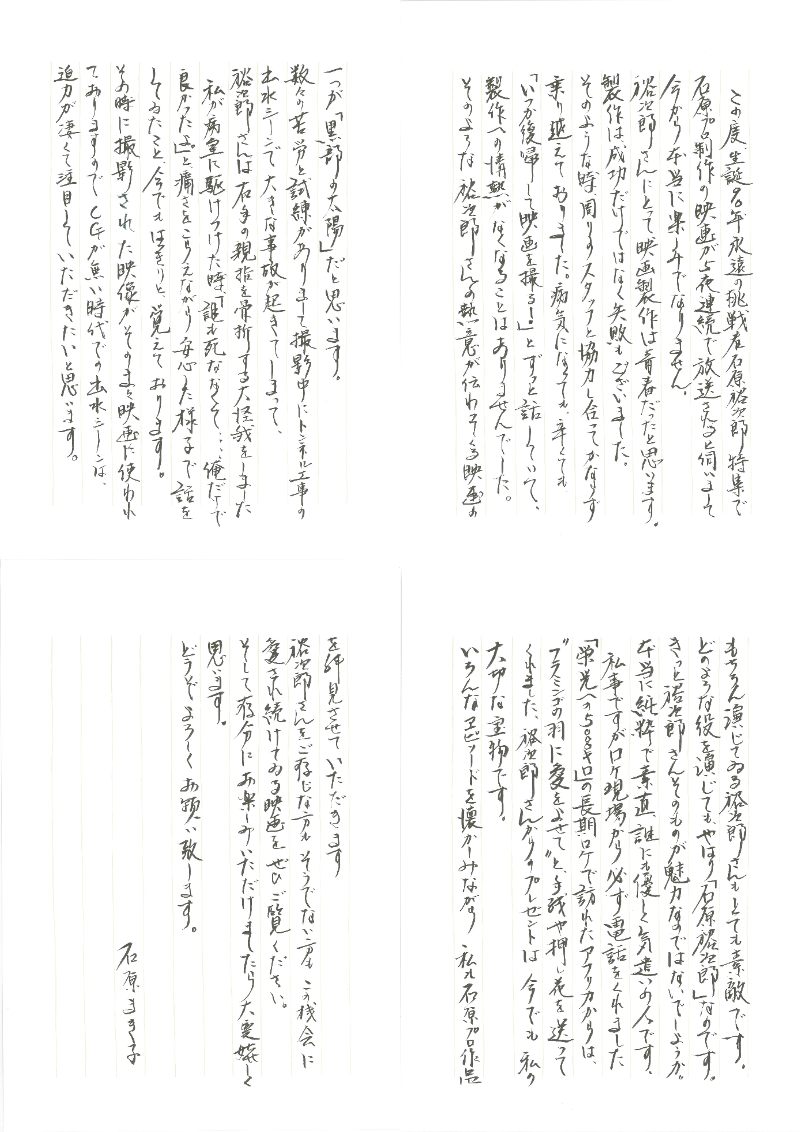 この度生誕90年永遠の挑戦者石原裕次郎特集で
石原プロ制作の映画が5夜連続で放送されると伺いまして
今から本当に楽しみでなりません。
裕次郎さんにとって映画製作は青春だったと思います。
製作は、成功だけではなく失敗もございました。
そのような時周りのスタッフと協力し合ってかならず
乗り越えておりました。病気になっても、辛くても
「いつか復帰して映画を撮る!」とずっと話していて、
製作への情熱がなくなることはありませんでした。
そのような裕次郎さんの熱意が伝わってくる映画の
一つが「黒部の太陽」だと思います。
数々の苦労と試練がありまして撮影中にトンネル工事の
出水シーンで、大きな事故が起きてしまって、
裕次郎さんは右手の親指を骨折する大怪我をしました
私が病室に駆けつけた時、「誰も死ななくて...俺だけで
良かったよ」と痛さをこらえながら安心した様子で話を
してゐたこと今でもはっきりと覚えております。
その時に撮影された映像がそのまま映画に使われ
ておりますのでCGが無い時代での出水シーンは、
迫力が凄くて注目していただきたいと思います。
もちろん演じてゐる裕次郎さんもとても素敵です。
どのような役を演じてもやはり「石原裕次郎」なのです。
きっと裕次郎さんそのものが魅力なのではないでしょうか。
本当に純粋で素直、誰にも優しく気遣いの人です。
私事ですがロケ現場から必ず電話をくれました
「栄光への5000キロ」の長期ロケで訪れたアフリカからは、
"フラミンゴの羽に愛をよせて"と手紙や押し花を送って
くれました、裕次郎さんからのプレゼントは今でも私の
大切な宝物です。
いろんなエピソードを懐かしみながら私も石原プロ作品
を拝見させていただきます
裕次郎さんをご存じな方もそうでない方もこの機会に
愛され続けてゐる映画をぜひご覧ください。
そして存分にお楽しみいただけましたら大変嬉しく
思います。
どうぞよろしくお願い致します。
石原まき子